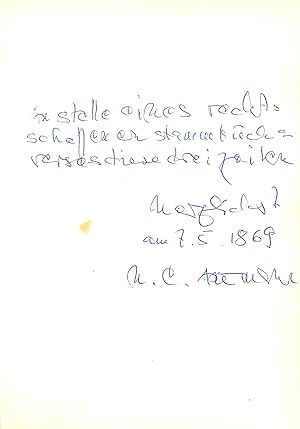 in stelle eines recht-
schaffenen stammbuch=
verses diese drei zeilen
herzlichst
am 7.5.1969
H. C. Artmann